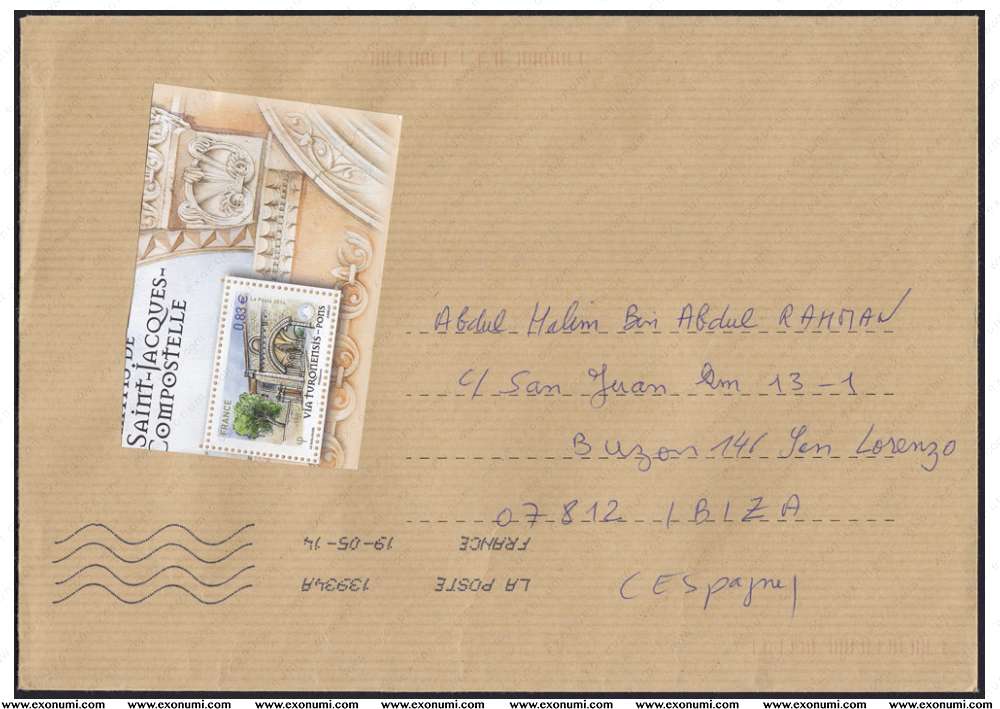 CHEMINS DE
SAINT-JACQUES-
COMPOSTELLE
0,83 €
La Poste 2014
FRANCE
VIA TURONENSIS - PONS
Abdul Halim Bin Abdul RAHMAN
c/ San Juan Km 13-1
Buzon 141 San Lorenzo
07812 IBIZA
(Espagne)
LA POSTE 13934A
FRANCE 19-05-14
www.exonumi.com www.exonumi.com www.exonumi.com www.exonumi.com www.exonumi.com www.exonumi.com www.exonumi.com www.exonumi.com